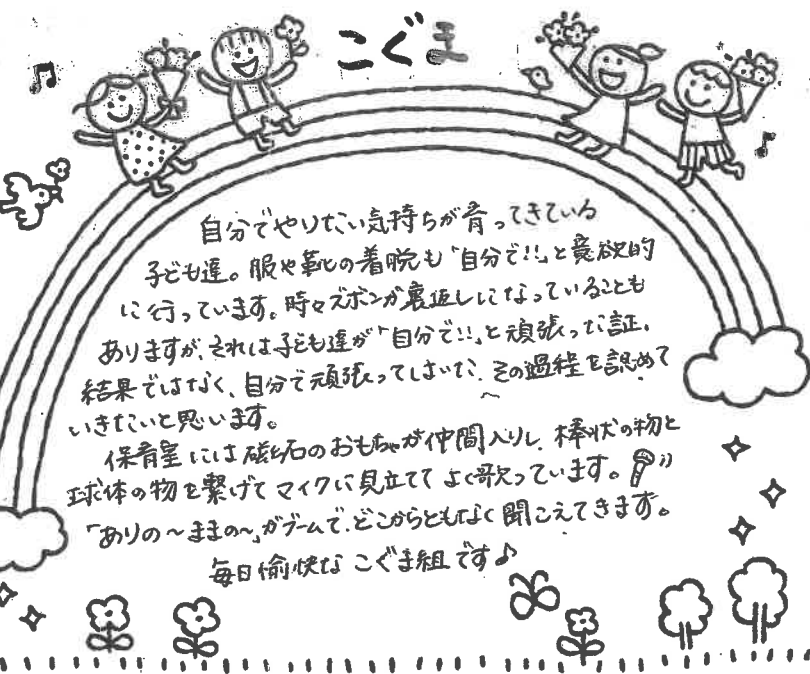 こぐま
自分でやりたい気持ちが育ってきている
子ども達。服や靴の着脱も「自分で!!」と意欲的
に行っています。時々ズボンが裏返しになっていることも
ありますが、それは子ども達が「自分で!!」と頑張った証。
結果ではなく、自分で頑張ってはいた、その過程を認めて
いきたいと思います。
保育室には磁石のおもちゃが仲間入りし、棒状の物と
球体の物を繋げてマイクに見立ててよく歌っています。
「ありの〜ままの〜」がブームで、どこからともなく聞こえてきます。
毎日愉快なこぐま組です♪